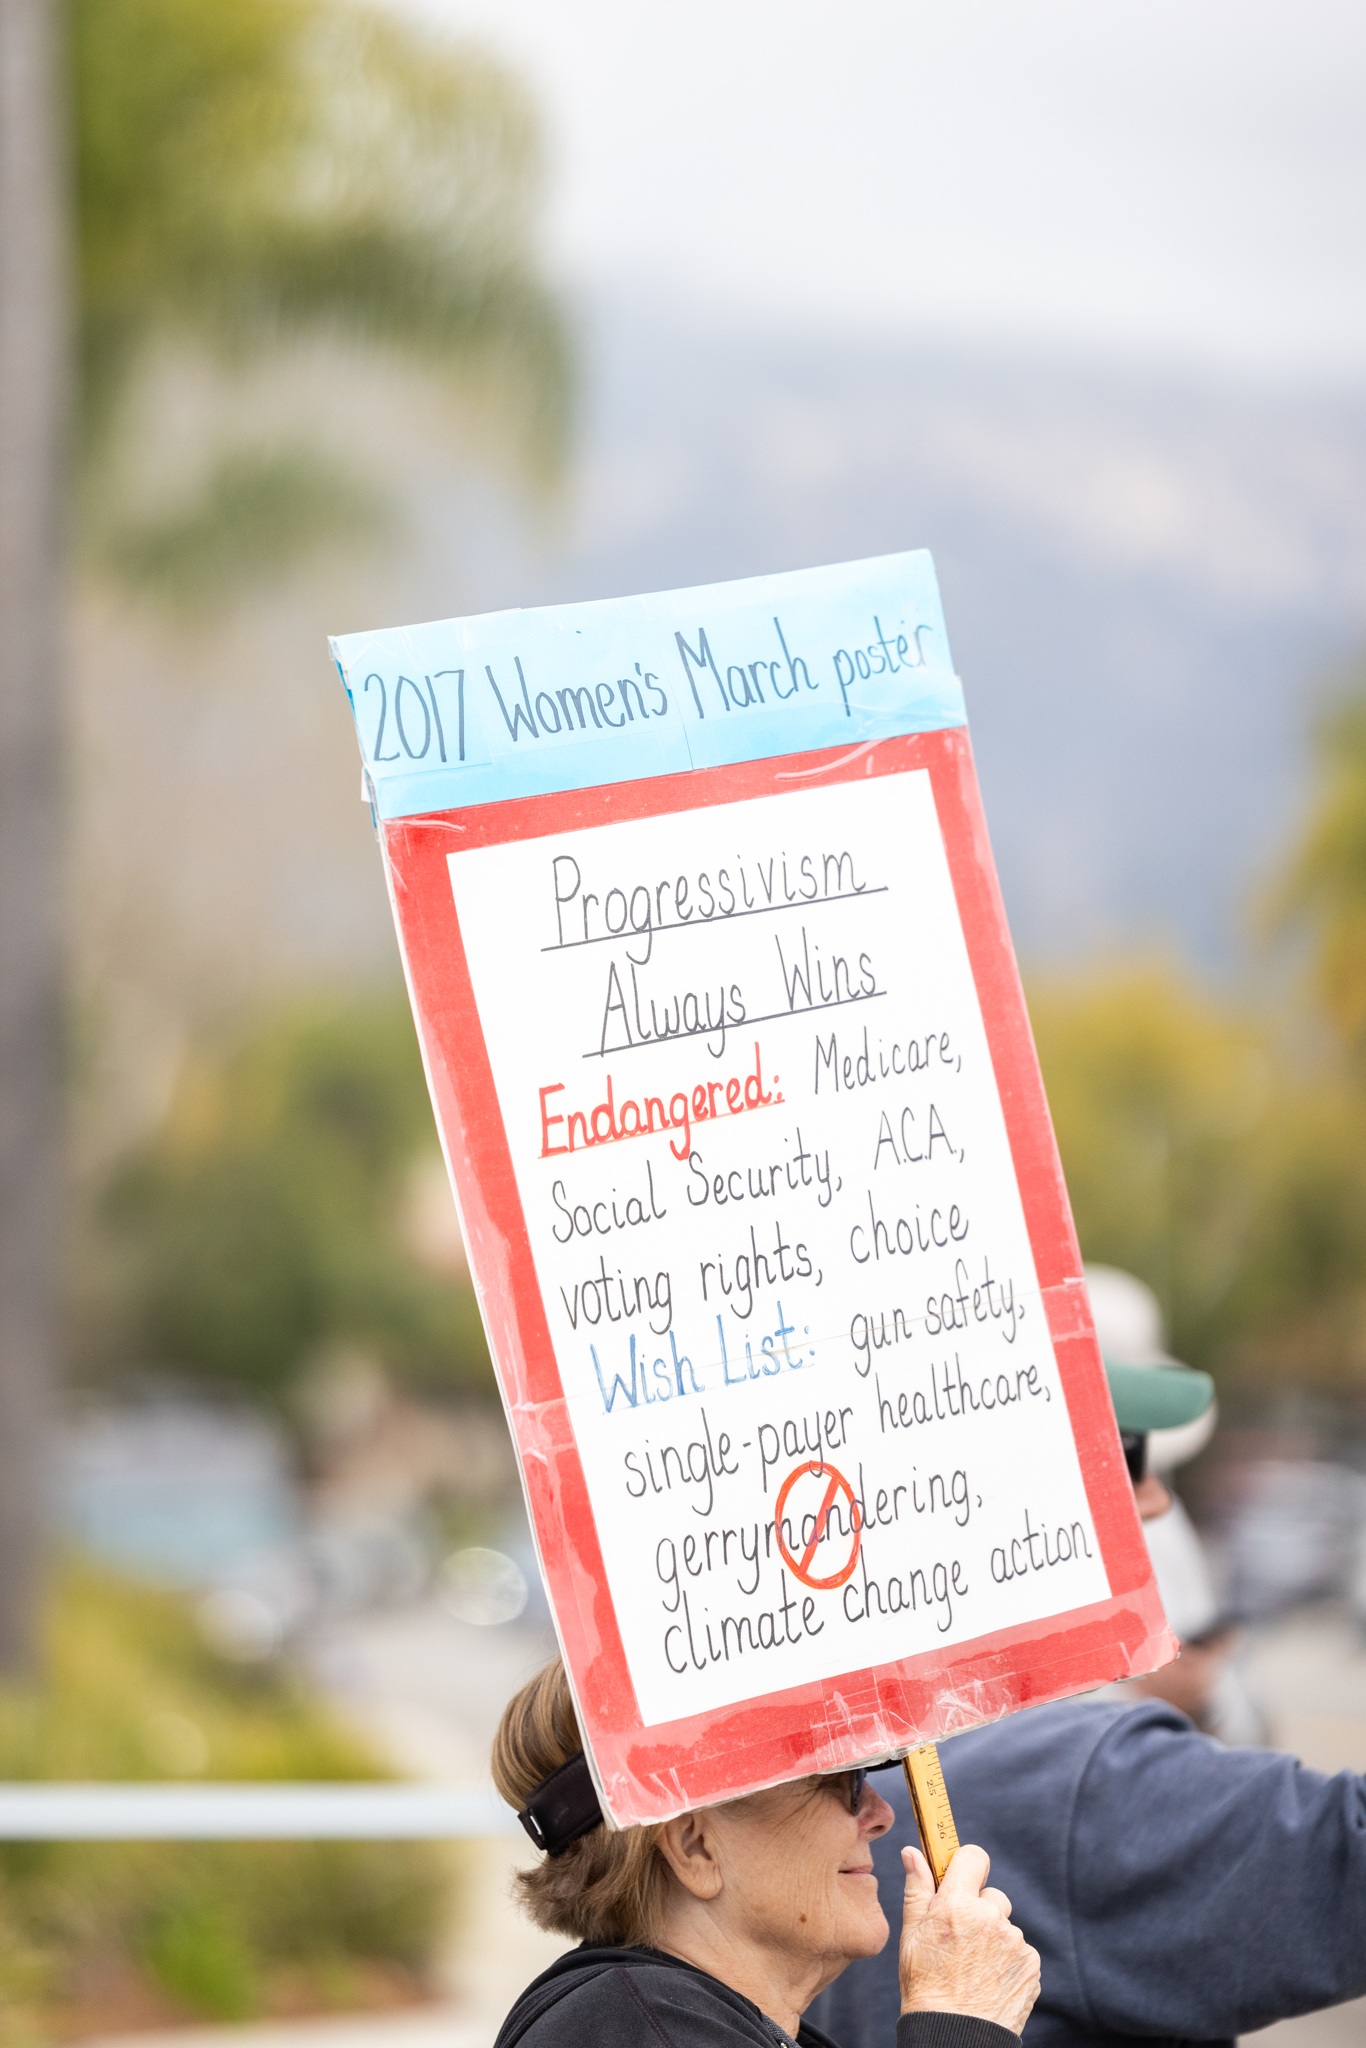 2017 Women's March poster
Progressivism
Always Wins
Endangered: Medicare,
Social Security, A.C.A.,
voting rights, choice
Wish List: gun safety,
single-payer healthcare,
gerrymandering,
climate change action
25
26